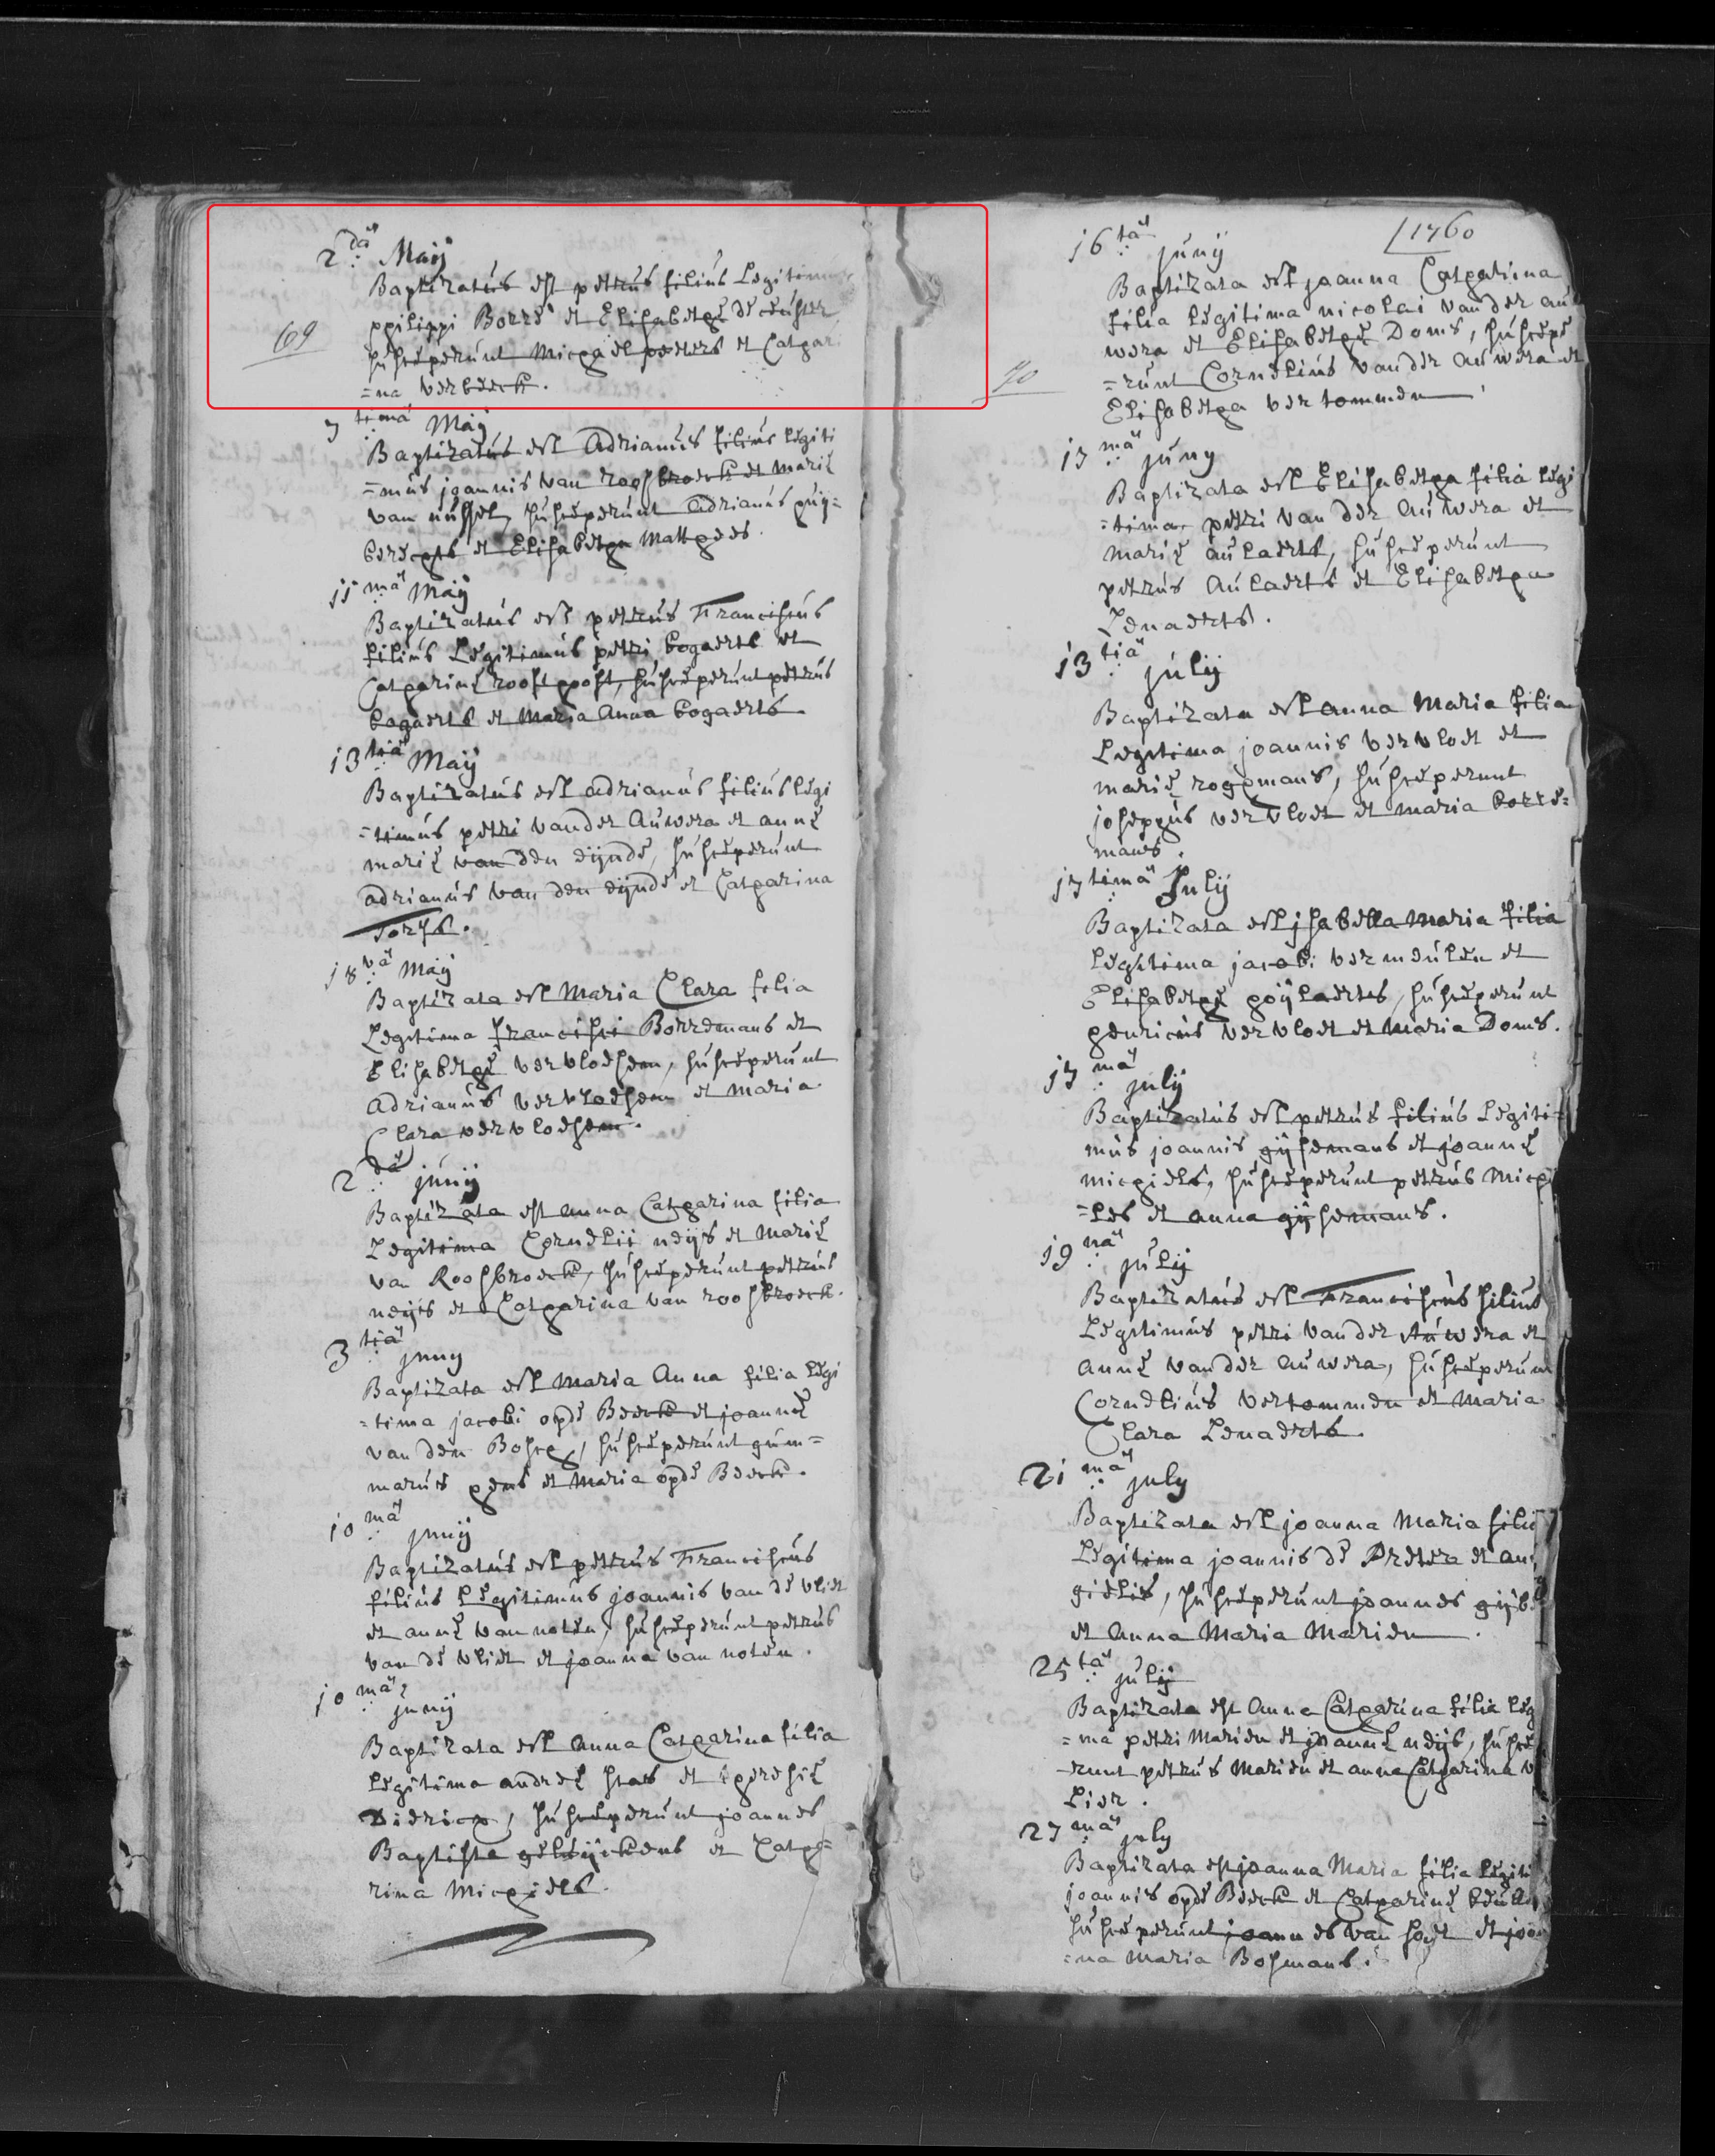 2 dä Maij
Baptizatús est petrús filiús Legitimús
philippi Borré et Elisabethę de ceúster
súscéperúnt Michael peeters et Cathari
=na verbeeck.
69
7 timä Maÿ
Baptizatús est Adrianús filiús légiti
=mús joannis van roosbroeck et marię
van núffel, súscéperúnt Adrianús húÿ=
berechts et Elisabetha Matthees.
11 mä Maÿ
Baptizatús est petrús Franciscús
filiús Légitimús petri bogaerts et
Catharinę rooft hooft, súscéperúnt petrús
bogaerts et Maria Anna bogaerts
13 tiä Maij
Baptizatús est adrianús filiús légi
=timús petri vander Aúwera et annę
marię van den eijndé, súscéperúnt
adrianús van den eijndé et Catharina
Torfs.
18 vä Maij
Baptizata est Maria Clara filia
Legitima francisci Borremans et
Elisabethę vervloesem, súscéperúnt
Adrianús vervloesem et Maria
Clara vervloesem.
2 dä júnij
Baptizata est Anna Catharina filia
Legitima Cornelii neijs et Marię
van Roosbroeck, súscéperúnt petrús
neijs et Catharina van roosbroeck.
3 tiä juny
Baptizata est Maria Anna filia légi
=tima jacobi opdé Beeck et joannę
van den Bosch, súscéperúnt gúm=
marús hens et Maria opdé Beeck.
10 mä junij
Baptizatús est petrús Franciscús
filiús Légitimús joannis van dé vliet
et annę van noten, súscéperúnt petrús
van dé vliet et joanna van noten.
10 mä junij
Baptizata est Anna Catharina filia
Légitima andreę stas et theresię
Dierich, súscéperúnt joannes
Baptista géluÿckens et Catha=
rina Michiels.
1760
16 tä júnij
Baptizata est joanna Catharina
filia légitima nicolai vander aú
wera et Elisabethę Doms, súscépé
=rúnt Cornéliús vander Aúwera et
Elisabetha vertommen
70
17 mä júny
Baptizata est Elisabetha filia légi
=tima petri van der Aúwera et
marię aúlaerts, súscéperúnt
petrús Aúlaerts et Elisabetha
Lenaerts.
13 tiä júlij
Baptizata est Anna Maria filia
Legitima joannis vervloet et
marię roggmans, súscéperunt
josephús vervloet et maria borré=
mans.
17 timä Julij
Baptizata est jsabella Maria filia
Légitima jacobi vermeúlen et
Elisabethę hoÿlaerts, súscéperúnt
henricús vervloet et Maria Doms.
17 mä julij
Baptizatús est petrús filiús Légiti=
mús joannis gijsemans et joannę
michiels, súscéperúnt petrús Michi
=els et anna gijsemans.
19 nä júlij
Baptizatús est Franciscús filiús
Légitimús petri vander Aúwera et
Annę vander aúwera, súscéperúnt
Cornéliús vertommen et Maria
Clara Lenaerts.
21 mä july
Baptizata est joanna Maria filia
Légitima joannis dé Pretera et an
gielis, súscéperúnt joannes gijb
et Anna Maria Marien.
25 tä júlij
Baptizata est Anna Catharina filia Lég
=ma petri Marien et joannę neijs, súscé
-runt petrús Marien et anna Catharina v
Lier.
27 mä july
Baptizata est joanna Maria filia légiti
joannis opdé Beeck et Catharinę
súscéperúnt joannes van et joan
=na Maria Bosmans.